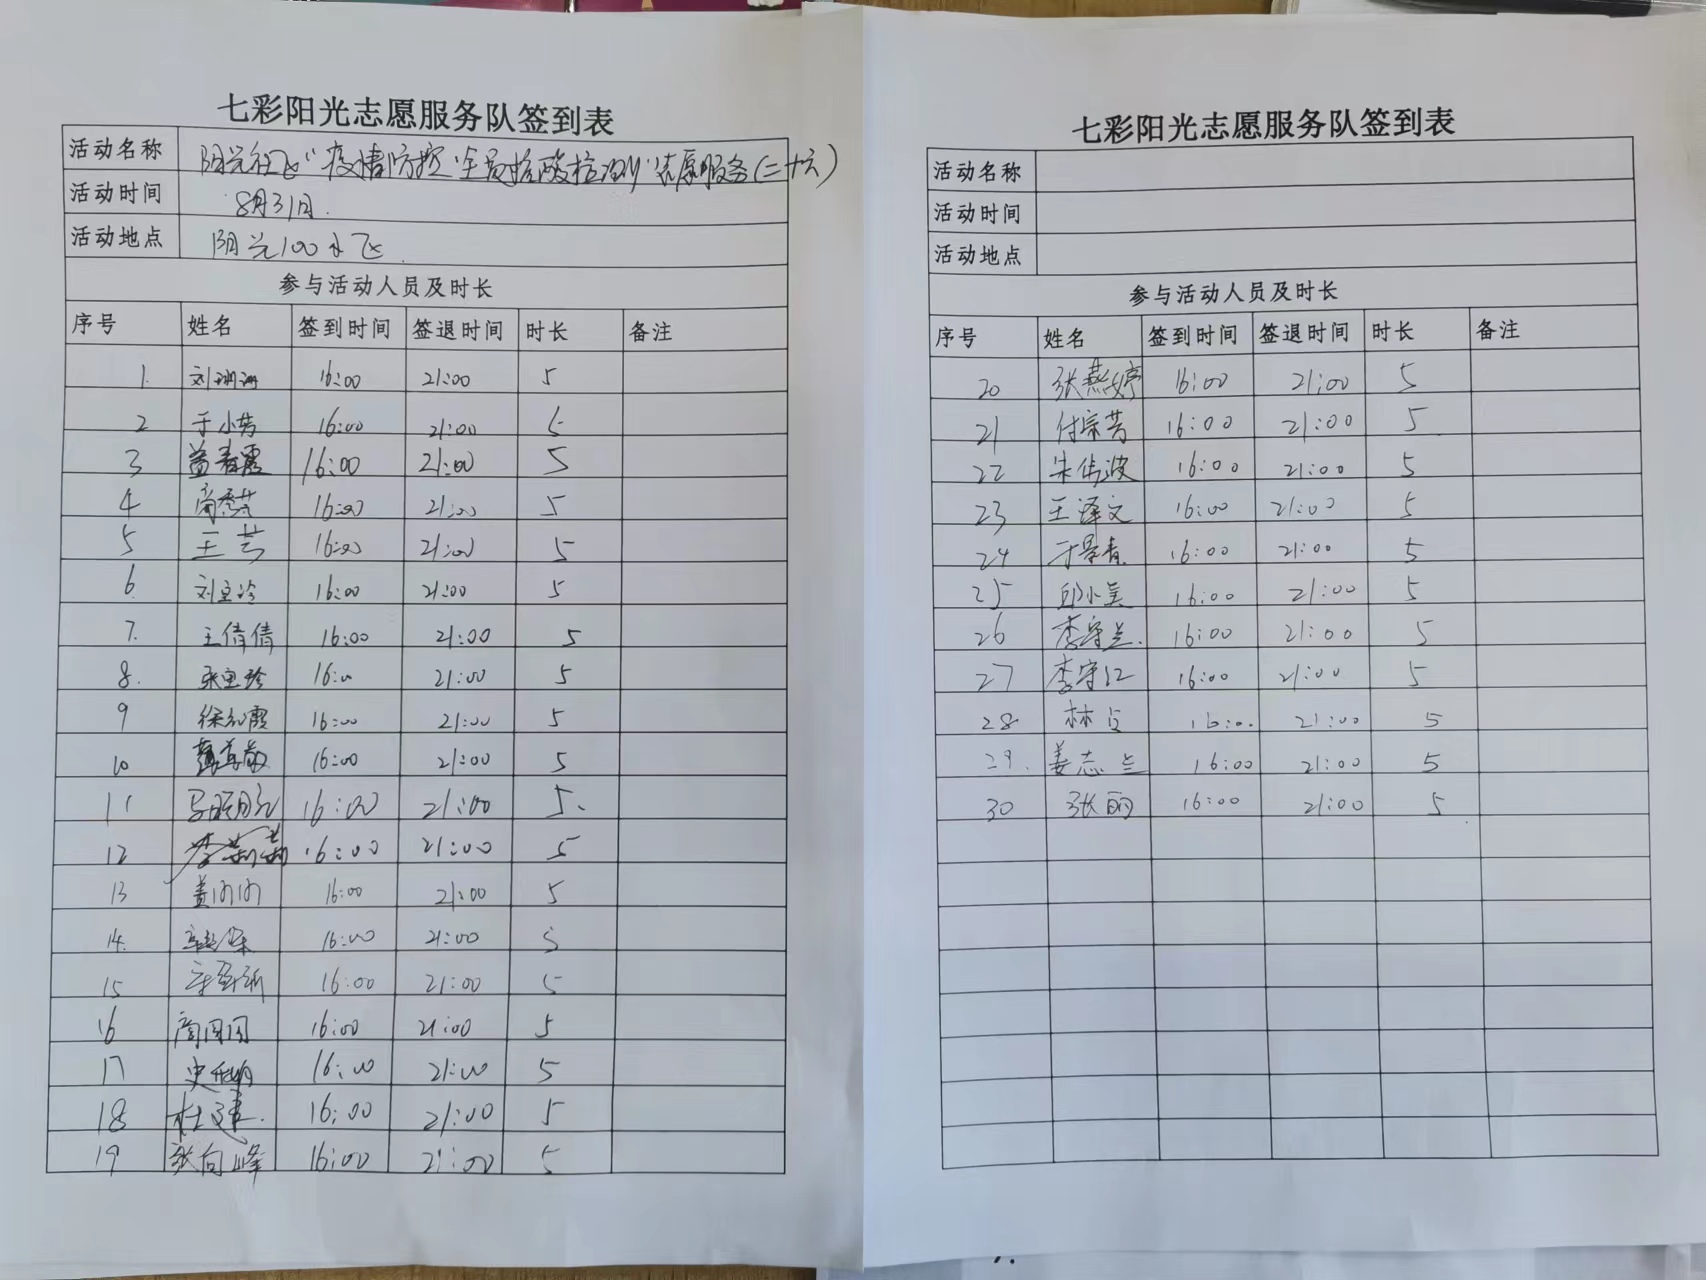 七彩阳光志愿服务队签到表
活动名称 阳光社区"疫情防控 全员核酸检测"志愿服务(二十六)
活动时间 8月31日.
活动地点 阳光100
参与活动人员及时长
序号 姓名 签到时间 签退时间 时长 备注
1. 16:00 21:00 5
2 于小芳 16:00 21:00 5
3 16:00 21:00 5
4 16:00 21:00 5
5 王芸 16:00 21:00 5
6. 刘 16:00 21:00 5
7. 王倩倩 16:00 21:00 5
8. 张 16:00 21:00 5
9 徐 霞 16:00 21:00 5
10 16:00 21:00 5
11 16:00 21:00 5.
12 李莉莉 16:00 21:00 5
13 姜 16:00 21:00 5
14. 16:00 21:00 5
15 16:00 21:00 5
16 16:00 21:00 5
17 史 16:00 21:00 5
18 杜建. 16:00 21:00 5
19 张向峰 16:00 21:00 5
七彩阳光志愿服务队签到表
活动名称
活动时间
活动地点
参与活动人员及时长
序号 姓名 签到时间 签退时间 时长 备注
20 张燕婷 16:00 21:00 5
21 付宗芳 16:00 21:00 5
22 朱伟波 16:00 21:00 5
23 王泽文 16:00 21:00 5
24 于景春 16:00 21:00 5
25 邱小美 16:00 21:00 5
26 李守兰. 16:00 21:00 5
27 李守江 16:00 21:00 5
28 林 16:00 21:00 5
29. 姜志兰 16:00 21:00 5
30 张丽 16:00 21:00 5